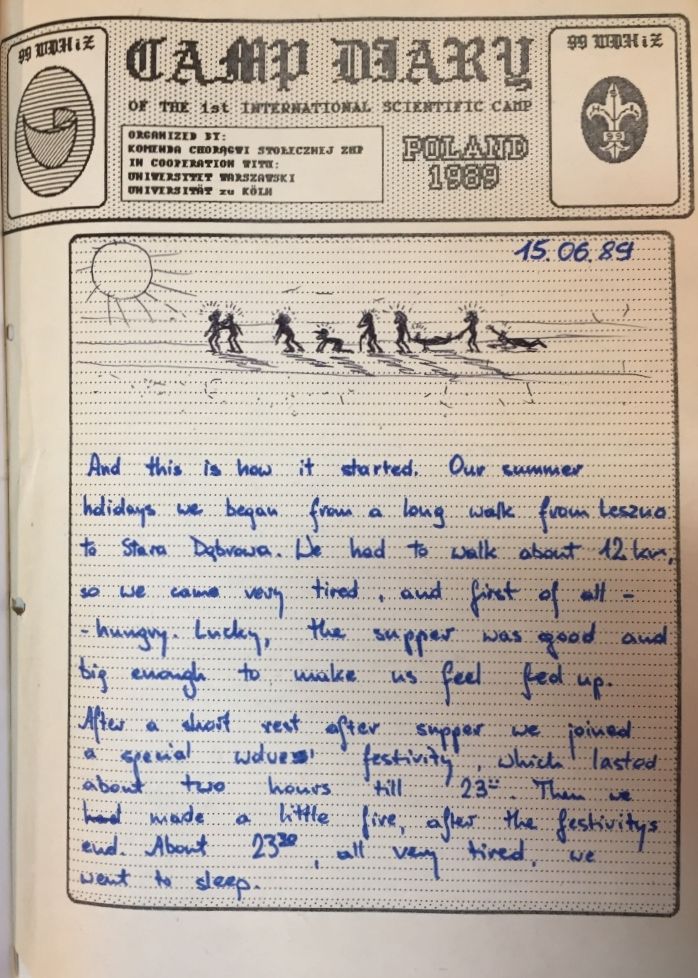 99 WDHiZ
CAMP DIARY
99 WDHiZ
OF THE 1st INTERNATIONAL SCIENTIFIC CAMP
ORGANIZED BY:
KOMENDA CHORĄGWI STOŁECZNEJ ZHP
IN COOPERATION WITH:
UNIWERSYTET WARSZAWSKI
UNIVERSITÄT zu KÖLN
POLAND
1989
99
15.06.89
And this is how it started. Our summer
holidays we began from a long walk from Leszno
to Stara Dąbrowa. We had to walk about 12 km,
so we came very tired, and first of all -
- hungry. Lucky, the supper was good and
big enough to make us feel fed up.
After a short rest after supper we joined
a special wolves' festivity, which lasted
about two hours till 23. Then we
had made a little fire, after the festivitys
end. About 23³⁰, all very tired, we
went to sleep.